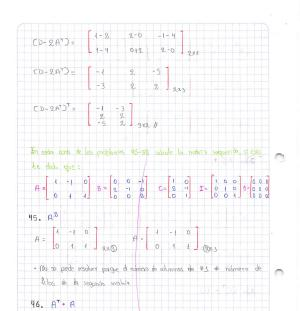 (D-2Aᵀ) = [ 1-2 2-0 -1-4
1-4 0+2 2-0 ] 2x3
(D-2Aᵀ) = [ -1 2 -5
-3 2 2 ] 2x3
(D-2Aᵀ)ᵀ = [ -1 -3
2 2
-5 2 ] 3x2 //
En cada uno de los problemas 45-52 calcule la matriz requerida, si
se dado que:
A = [ 1 -1 0
0 1 1 ] B = [ 0 0 -1
2 -1 0
0 0 ] C = [ 1 0
2 -1
0 1 ] I = [ 1 0 0
0 1 0
0 0 1 ] [ 0 0 0
0 0 0
0 0 0 ]
45. A²
A = [ 1 -1 0
0 1 1 ] 2x3 A = [ 1 -1 0
0 1 1 ] 2x3
• No se puede resolver porque el número de columnas de #1 ≠ número de
filas de la segunda matriz
46. Aᵀ · A